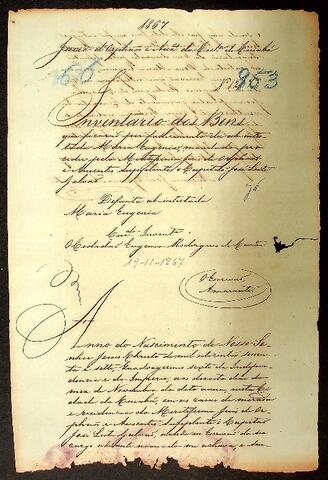 1867
Juizo d'Orphãos e Aus.es da Cid.e de Cuiabá
66
Nº 14
853
Inventario dos Bens
que ficarão por fallecimento da ab intes
tada Maria Eugenia, mandado pro
ceder pelo Meritissimo Juiz de Orphãos
e Ausentes Supplente o Capitão José Leite
Galvão
76
Defunta ab intestada
Maria Eugenia
Cur.or Inventr.e
O Cidadão Eugenio Rodrigues de
19-11-1867
O Escrivão
Amarante
Anno do Nascimento de Nosso Se
nhor Jesus Christo de mil oito centos sessen
ta e sette, Quadragesimo sexto da Indepen
dencia e do Imperio, aos dezoito dias do
mez de Novembro do dito anno, nesta Ci
dade de Cuiabá, em as casas de morada
e residencia do Meritissimo Juiz de Or
phãos e Ausentes Supplente o Capitão
José Leite Galvão, onde eu Escrivão do seu
cargo abaixo nomeado me achava e sen